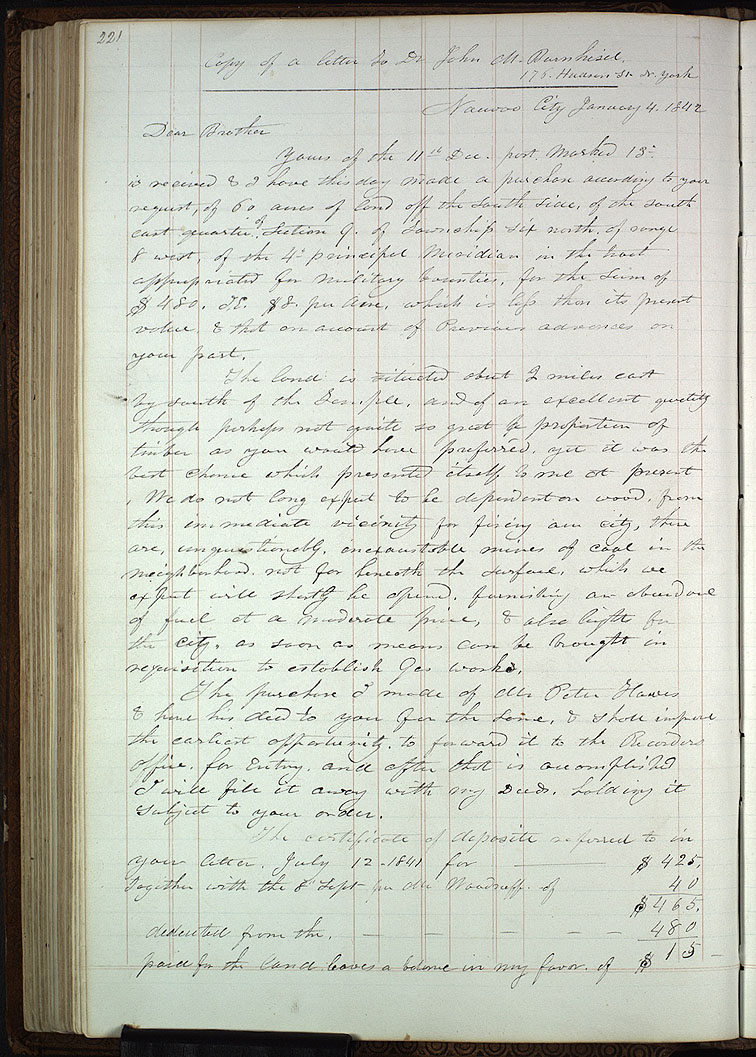 221
Copy of a letter to Dr John M. Burnhisel.
175. Hudson St. N. York
Nauvoo City January 4. 1842
Dear Brother
Yours of the 11th Dec. post Marked 13th
is received & I have this day made a purchase according to your
request, of 60 acres of land off the south side, of the south
east quarter of Section 9. of Township six north, of range
8 west, of the 4th principal Meridian in the tract
appropriated for Military bounties, for the Sum of
$480. I.E. $8. per Acre, which is less than its present
value, & that on account of Previous advances on
your part.
The land is situated about 2 miles east
by south of the Temple, and of an excellent quality
though perhaps not quite so great a proportion of
timber as you would have preferred, yet it was the
best chance which presented itself to me at present
, We do not long expect to be dependent on wood, from
this immediate vicinity for fireing our city, there
are, unquestionably, inexaustable mines of coal in the
neighborhood. not far beneath the surface, which we
expect will shortly be opend, furnishing an abundance
of fuel at a moderate price, & also light for
the city, as soon as means can be brought in
requisition to establish Gas works,
The purchase I made of Mr Peter Hawes
& have his deed to you for the same, & shall improve
the earliest opportunity, to forward it to the Recorders
office, for Entry. and after that is accomplished
I will file it away with my Deeds, holding it
subject to your order.
The certificate of deposite referred to in
your letter, July 12-1841 for $425,
Together with the 8th Sept per Mr Woodruff. of 40
$465.
deducted from the, 480
paid for the land leaves a balance in my favor. of $15